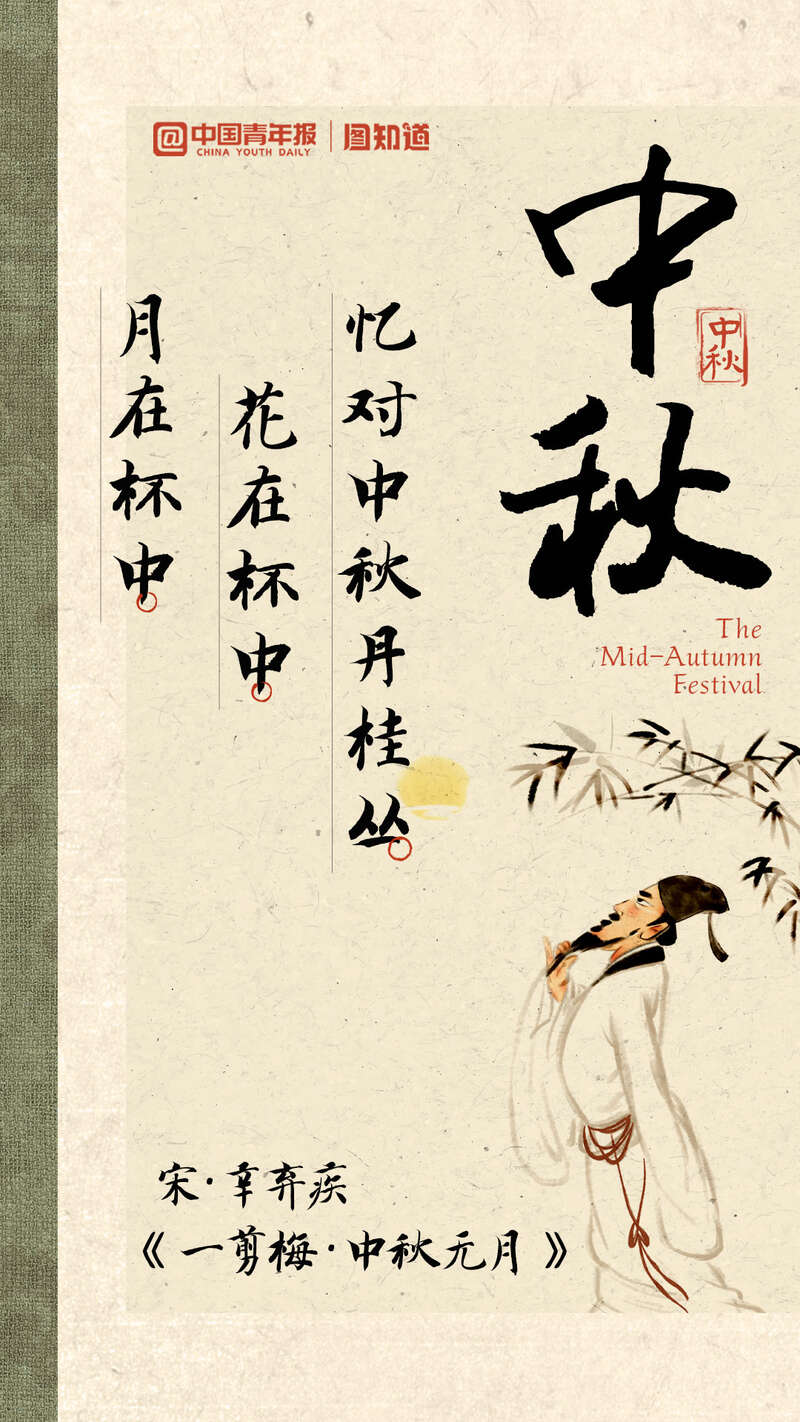 @中国青年报 | 图知道
CHINA YOUTH DAILY
中秋
中秋
The
Mid-Autumn
Festival
忆对中秋丹桂丛
花在杯中
月在杯中
宋·辛弃疾
《一剪梅·中秋元月》